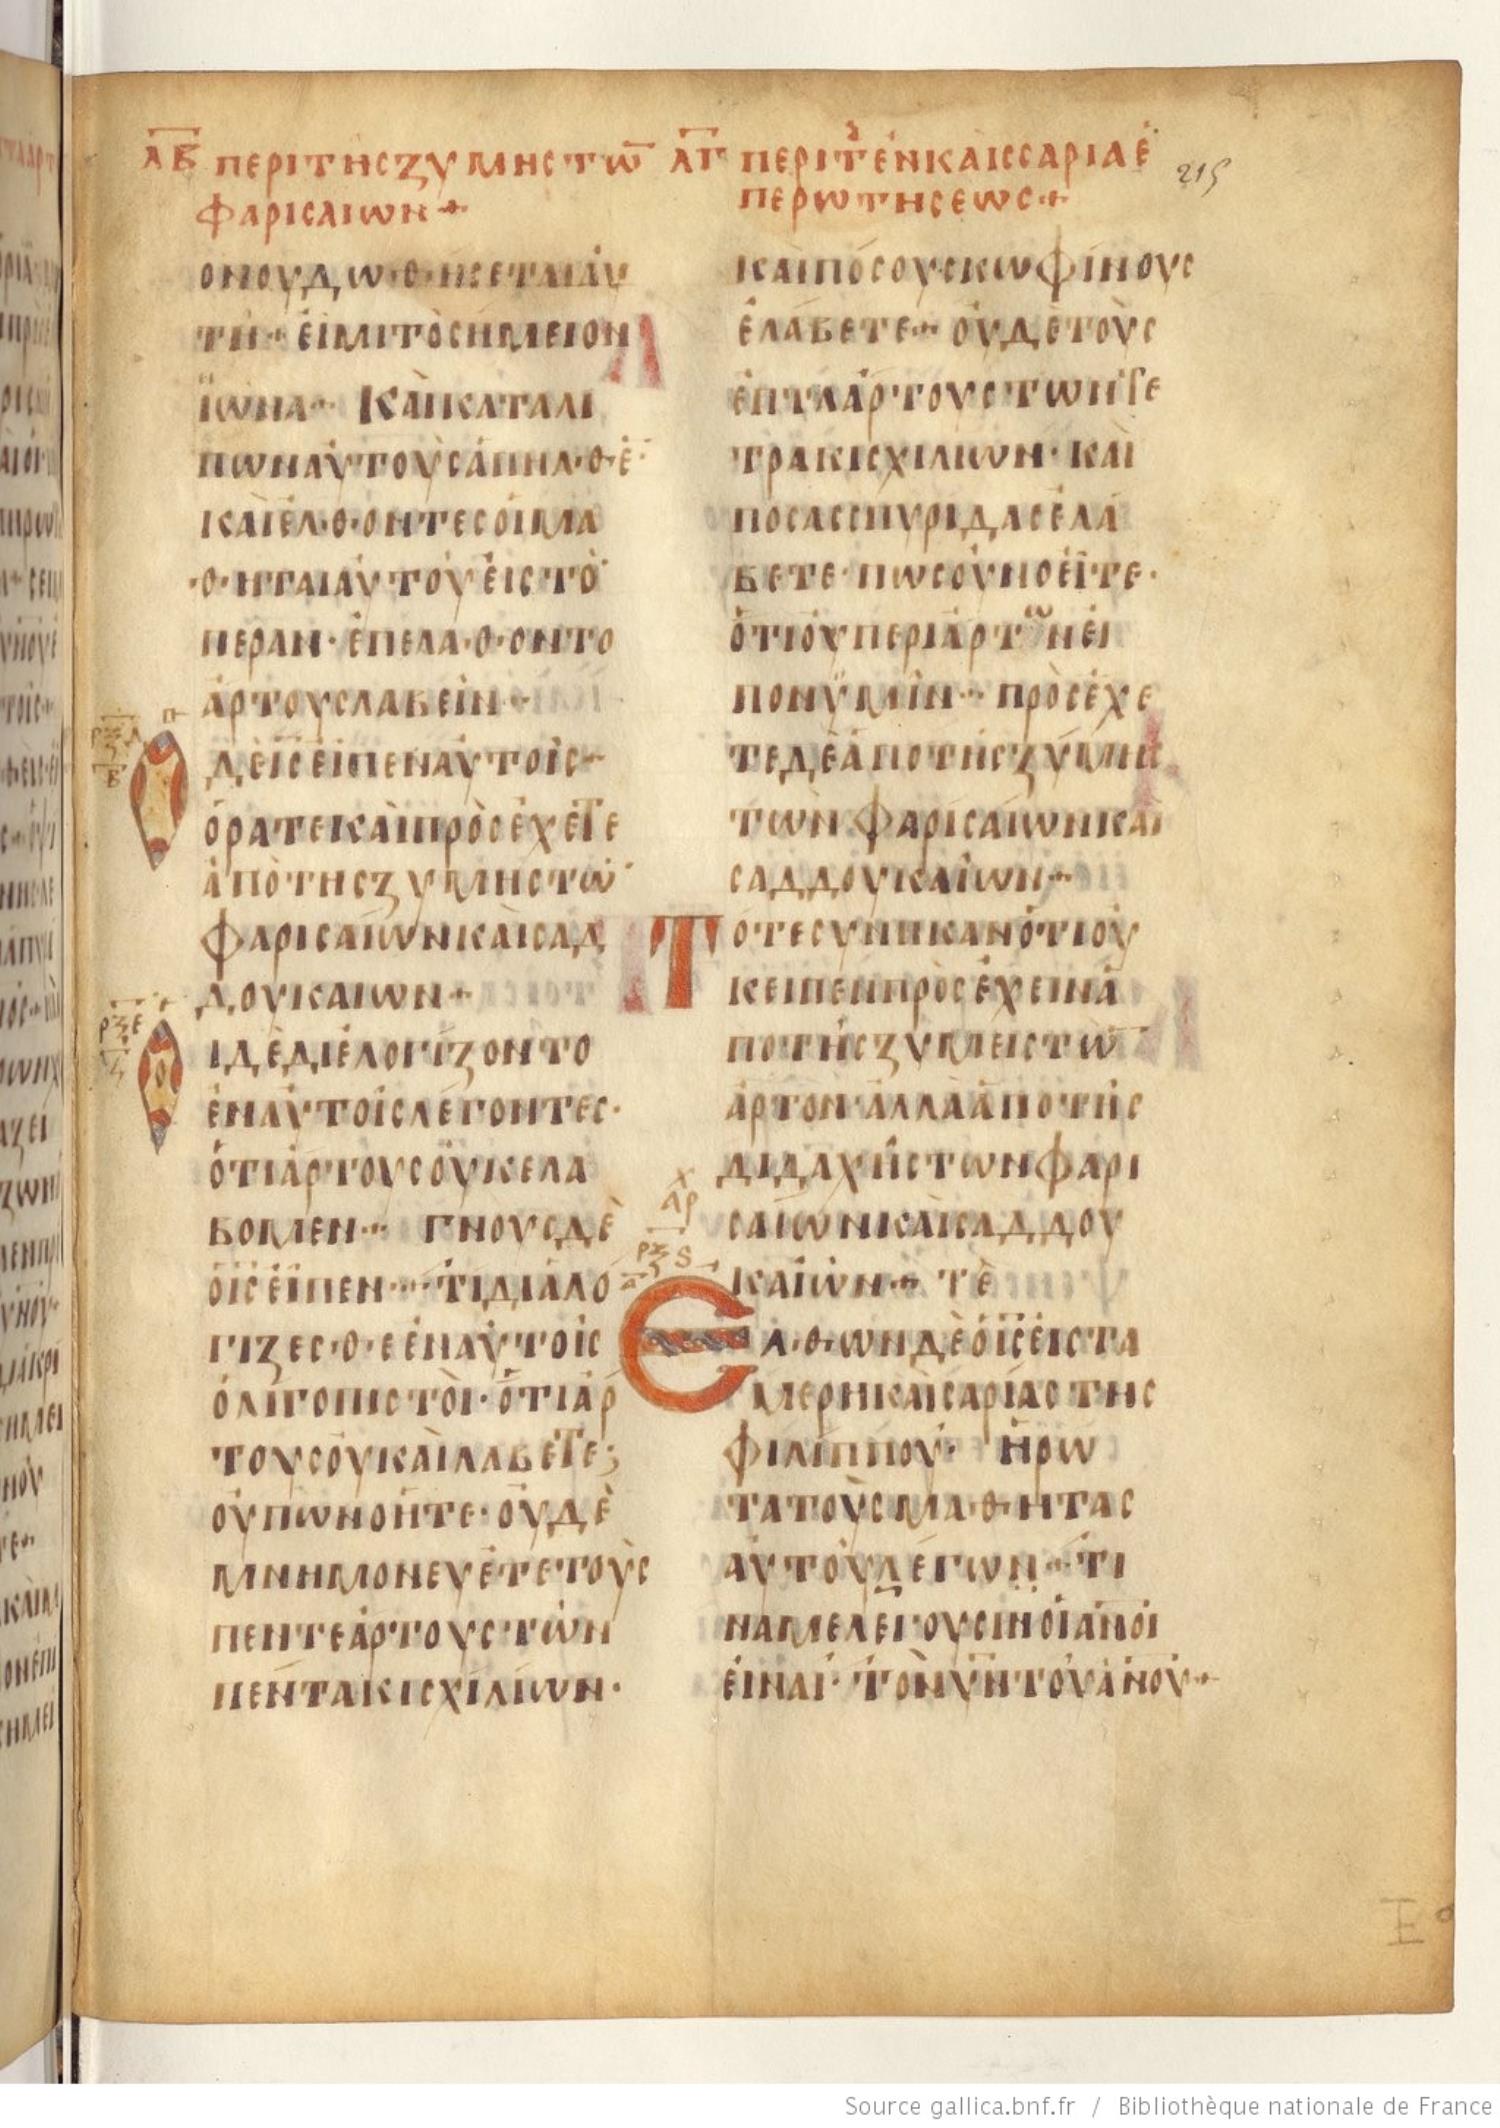 ΛΒ ΠΕΡΙ ΤΗС ΖΥΜΗС ΤΩ̅
ΦΑΡΙСΑΙΩΝ
ΛΓ ΠΕΡΙ Τ ΕΝ ΚΑΙССΑΡΙΑ Ε
ΠΕΡΩΤΗСΕΩС
215
ΟΝΟΥΔΩΘΗСΕΤΑΙΑΥ
ΤΗ ΕΙΜΙΤΟСΗΜΕΙΟΝ
ΪΩΝΑ ΚΑΙΚΑΤΑΛΙ
ΠΩΝΑΥΤΟΥСΑΠΗΛΘΕ
ΚΑΙΕΛΘΟΝΤΕСΟΙΜΑ
ΘΗΤΑΙΑΥΤΟΥΕΙСΤΟ
ΠΕΡΑΝ· ΕΠΕΛΑΘΟΝΤΟ
ΑΡΤΟΥСΛΑΒΕΙΝ
ΔΕΙ̅С̅ΕΙΠΕΝΑΥΤΟΙС
ΟΡΑΤΕΚΑΙΠΡΟСΕΧΕΤΕ
ΑΠΟΤΗСΖΥΜΗСΤΩ̅
ΦΑΡΙСΑΙΩΝΚΑΙСΑΔ
ΔΟΥΚΑΙΩΝ
ΟΙΔΕΔΙΕΛΟΓΙΖΟΝΤΟ
ΕΝΑΥΤΟΙСΛΕΓΟΝΤΕС·
ΟΤΙΑΡΤΟΥСΟΥΚΕΛΑ
ΒΟΜΕΝ ΓΝΟΥСΔΕ
ΟΙ̅С̅ΕΙΠΕΝ ΤΙΔΙΑΛΟ
ΓΙΖΕСΘΕΕΝΑΥΤΟΙС
ΟΛΙΓΟΠΙСΤΟΙ· ΟΤΙΑΡ
ΤΟΥСΟΥΚΑΙΛΑΒΕΤΕ;
ΟΥΠΩΝΟΗΤΕ· ΟΥΔΕ
ΜΝΗΜΟΝΕΥΕΤΕΤΟΥС
ΠΕΝΤΕΑΡΤΟΥСΤΩΝ
ΠΕΝΤΑΚΙСΧΙΛΙΩΝ·
ΚΑΙΠΟСΟΥСΚΩΦΙΝΟΥС
ΕΛΑΒΕΤΕ ΟΥΔΕΤΟΥС
ΕΠΤΑΑΡΤΟΥСΤΩΝΤΕ
ΤΡΑΚΙСΧΙΛΙΩΝ· ΚΑΙ
ΠΟСΑССΠΥΡΙΔΑСΕΛΑ
ΒΕΤΕ· ΠΩСΟΥΝΟΕΙΤΕ·
ΟΤΙΟΥΠΕΡΙΑΡΤΩΝΕΙ
ΠΟΝΥΜΙΝ ΠΡΟСΕΧΕ
ΤΕΔΕΑΠΟΤΗСΖΥΜΗС
ΤΩΝΦΑΡΙСΑΙΩΝΚΑΙ
СΑΔΔΟΥΚΑΙΩΝ
ΤΟΤΕСΥΝΗΚΑΝΟΤΙΟΥ
ΚΕΙΠΕΝΠΡΟСΕΧΕΙΝΑ
ΠΟΤΗСΖΥΜΕΙСΤΩ̅
ΑΡΤΟΝ· ΑΛΛΑΑΠΟΤΗС
ΔΙΔΑΧΗСΤΩΝΦΑΡΙ
СΑΙΩΝΚΑΙСΑΔΔΟΥ
ΚΑΙΩΝ ΤΕ
ΕΛΘΩΝΔΕΟΙ̅С̅ΕΙСΤΑ
ΜΕΡΗΚΑΙСΑΡΙΑСΤΗС
ΦΙΛΙΠΠΟΥ· ΗΡΩ
ΤΑΤΟΥСΜΑΘΗΤΑС
ΑΥΤΟΥΛΕΓΩΝ ΤΙ
ΝΑΜΕΛΕΓΟΥСΙΝΟΙΑ̅Ν̅Ο̅Ι̅
ΕΙΝΑΙ· ΤΟΝΥ̅Ν̅ΤΟΥΑ̅Ν̅Ο̅Υ̅
Source gallica.bnf.fr / Bibliothèque nationale de France